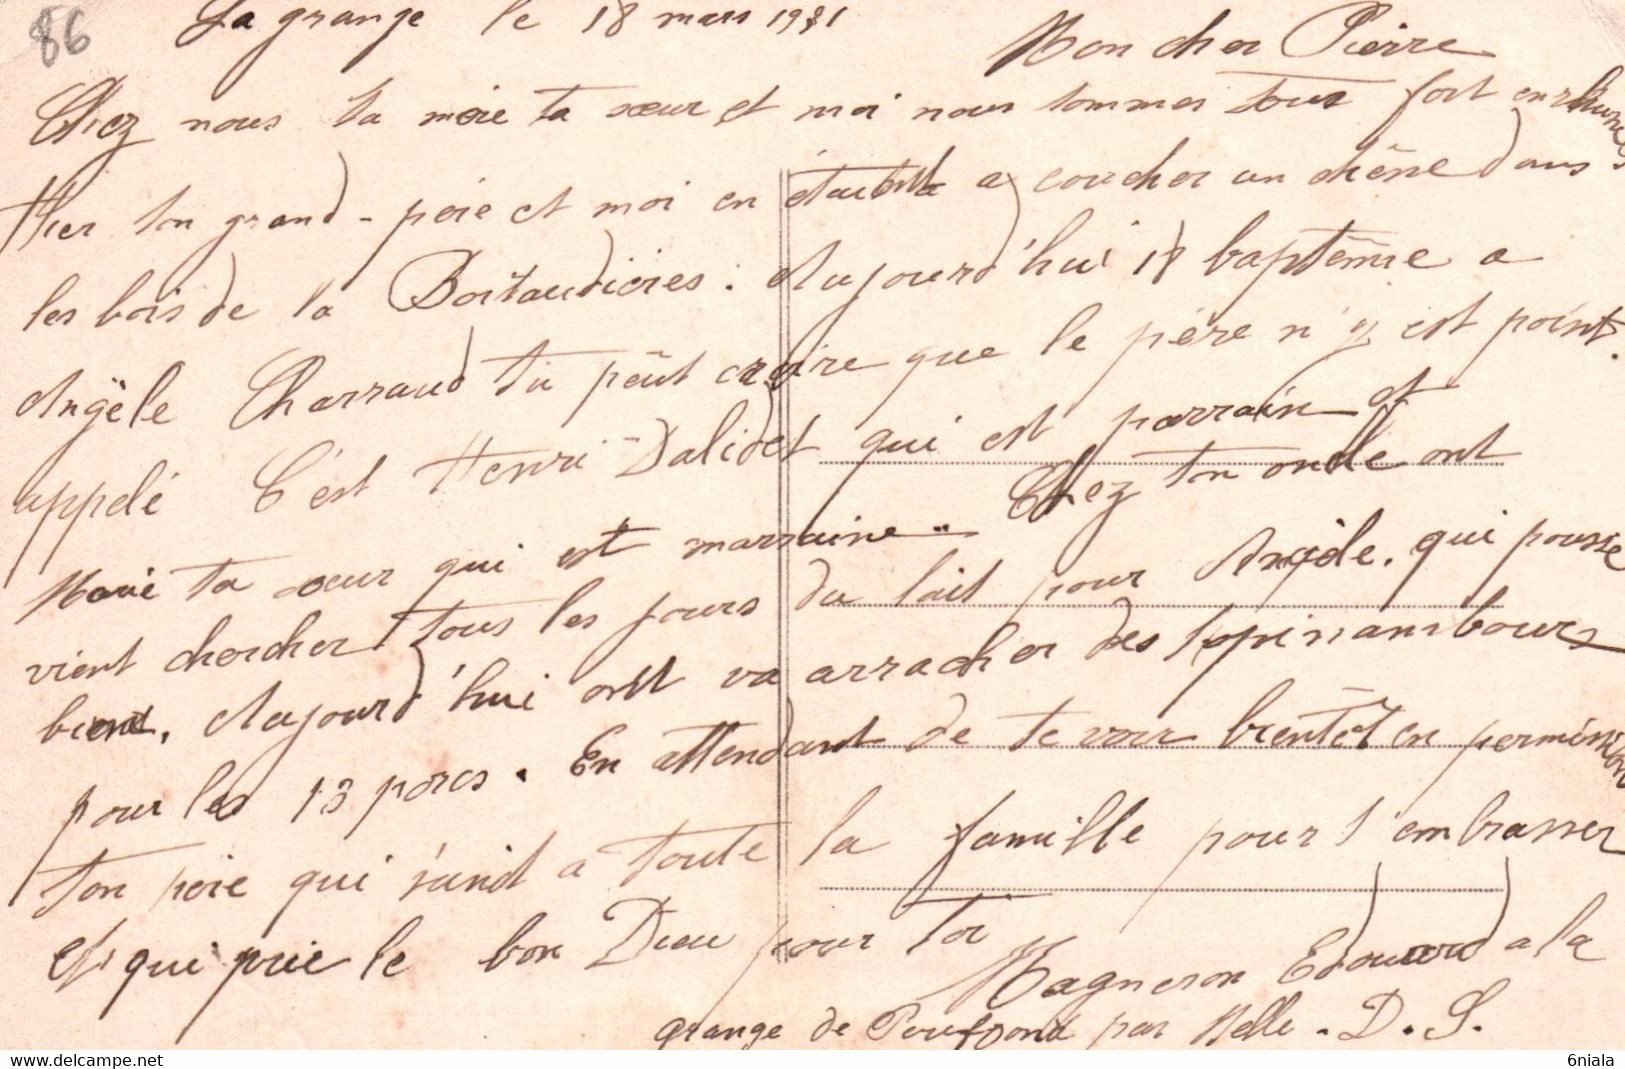 86
La grange le 18 mars 1931
Mon cher Pierre
Chez nous ta mère ta sœur et moi nous sommes tous fort enrhumés
Hier ton grand-père et moi en a coucher un chêne dans
les bois de la Boitaudières. Aujourd'hui 18 baptême a
Angèle Charraud tu peût croire que le père n'y est point
appelé C'est Henri Dalidet qui est parrain et
Marie ta sœur qui est marraine. Chez ton oncle ont
vient chercher tous les jours du lait pour Angèle. qui pousse
bien. Aujourd'hui ont va arracher des topinambours
pour les 13 porcs. En attendant de te voir bientôt en permission
ton père qui s'unid a toute la famille pour t'embrasser
et qui prie le bon Dieu pour toi
Magneron Edouard a la
grange de par Melle. D. S.
www.delcampe.net
6niala